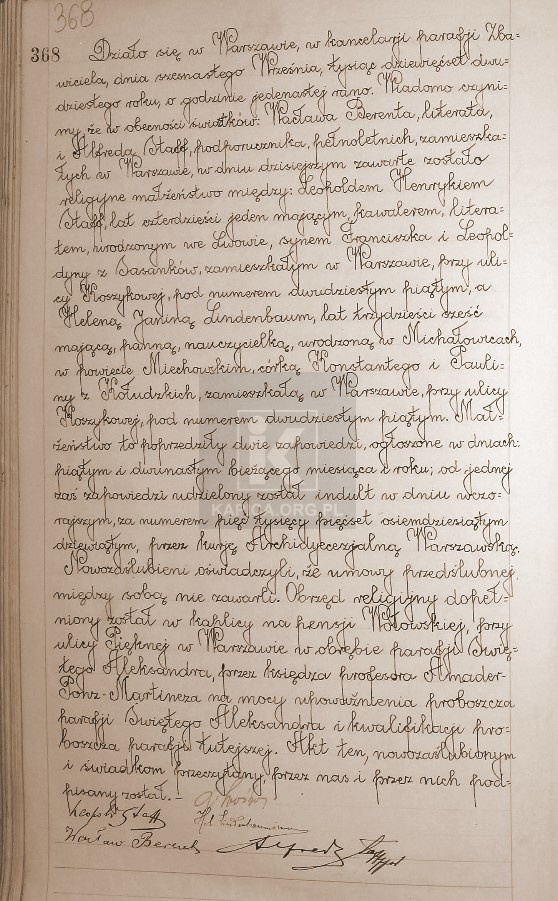 368
368 Działo się w Warszawie, w kancelarji parafji Zba-
wiciela, dnia szesnastego Września, tysiąc dziewięćset dwu-
dziestego roku, o godzinie jedenastej rano. Wiadomo czyni-
my, że w obecności świadków: Wacława Berenta, literata,
i Alfreda Staff, podporucznika, pełnoletnich, zamieszka-
łych w Warszawie, w dniu dzisiejszym zawarte zostało
religijne małżeństwo między: Leopoldem Henrykiem
Staff, lat czterdzieści jeden mającym, kawalerem, litera-
tem, urodzonym we Lwowie, synem Franciszka i Leopol-
dyny z Basanków, zamieszkałym w Warszawie, przy uli-
cy Koszykowej, pod numerem dwudziestym piątym, a
Heleną Janiną Lindenbaum, lat trzydzieści sześć
mającą, panną, nauczycielką, urodzoną w Michałowicach,
w powiecie Miechowskim, córką Konstantego i Pauli-
ny z Kołudzkich, zamieszkałą w Warszawie, przy ulicy
Koszykowej, pod numerem dwudziestym piątym. Mał-
żeństwo to poprzedziły dwie zapowiedzi, ogłoszone w dniach:
piątym i dwunastym bieżącego miesiąca i roku; od jednej
zaś zapowiedzi udzielony został indult w dniu wczo-
rajszym, za numerem pięć tysięcy pięćset osiemdziesiątym
dziewiątym, przez kurję Archidyecezjalną Warszawską.
Nowozaślubieni oświadczyli, że umowy przedślubnej
między sobą nie zawarli. Obrzęd religijny dopeł-
niony został w kaplicy na pensji Wołowskiej, przy
ulicy Pięknej w Warszawie w obrębie parafji Swię-
tego Aleksandra, przez księdza profesora Amader-
Pohz-Martineza na mocy upoważnienia proboszcza
parafji Świętego Aleksandra i kwalifikacji pro-
boszcza parafji tutejszej. Akt ten, nowozaślubionym
i świadkom przeczytany, przez nas i przez nich pod-
pisany został.
Leopold Staff
Wacław Berent Alfred Staff
KAFICA.ORG.PL